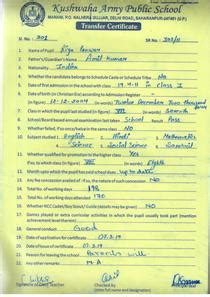 Kushwaha Army Public School
Transfer Certificate
Sl. No. 301
1. Name of Pupil
2. Father's/Guardian's Name Anil Kumar
3. Nationality Indian
4. Whether the candidate belongs to Schedule Caste or Schedule Tribe No
5. Date of first admission in the school with class in Class I
6. Date of birth (in Christian Era) according to Admission Register
(in figure) 12-12-2004 (in words) Twelve December Two thousand
7. Class in which the pupil last studied (in figure) VII (in words) Seventh
8. School/Board annual examination last taken School Pass
9. Whether failed, if so once/twice in the same class No
10. Subject studied: 1. English 2. Hindi 3. Mathematics
Science Social Science Sanskrit
11. Whether qualified for promotion to the higher class Yes
If so, to which class (in figure) VIII (in words) Eighth
12. Month upto which the pupil has paid school dues up to date
13. Any fee concession availed of: if so, the nature of such concession No
14. Total no. of working days 198
15. Total no. of working days attended 170
16. Whether NCC Cadet/Boy Scout/Guide (details may be given) No
17. Games played or extra curricular activities in which the pupil usually took part (mention
achievement level therein)
18. General conduct Good
19. Date of application for certificate 07.3.19
20. Date of issue of certificate 07.3.19
21. Reason for leaving the school Parents will
22. Any other remarks N.A
Checked by